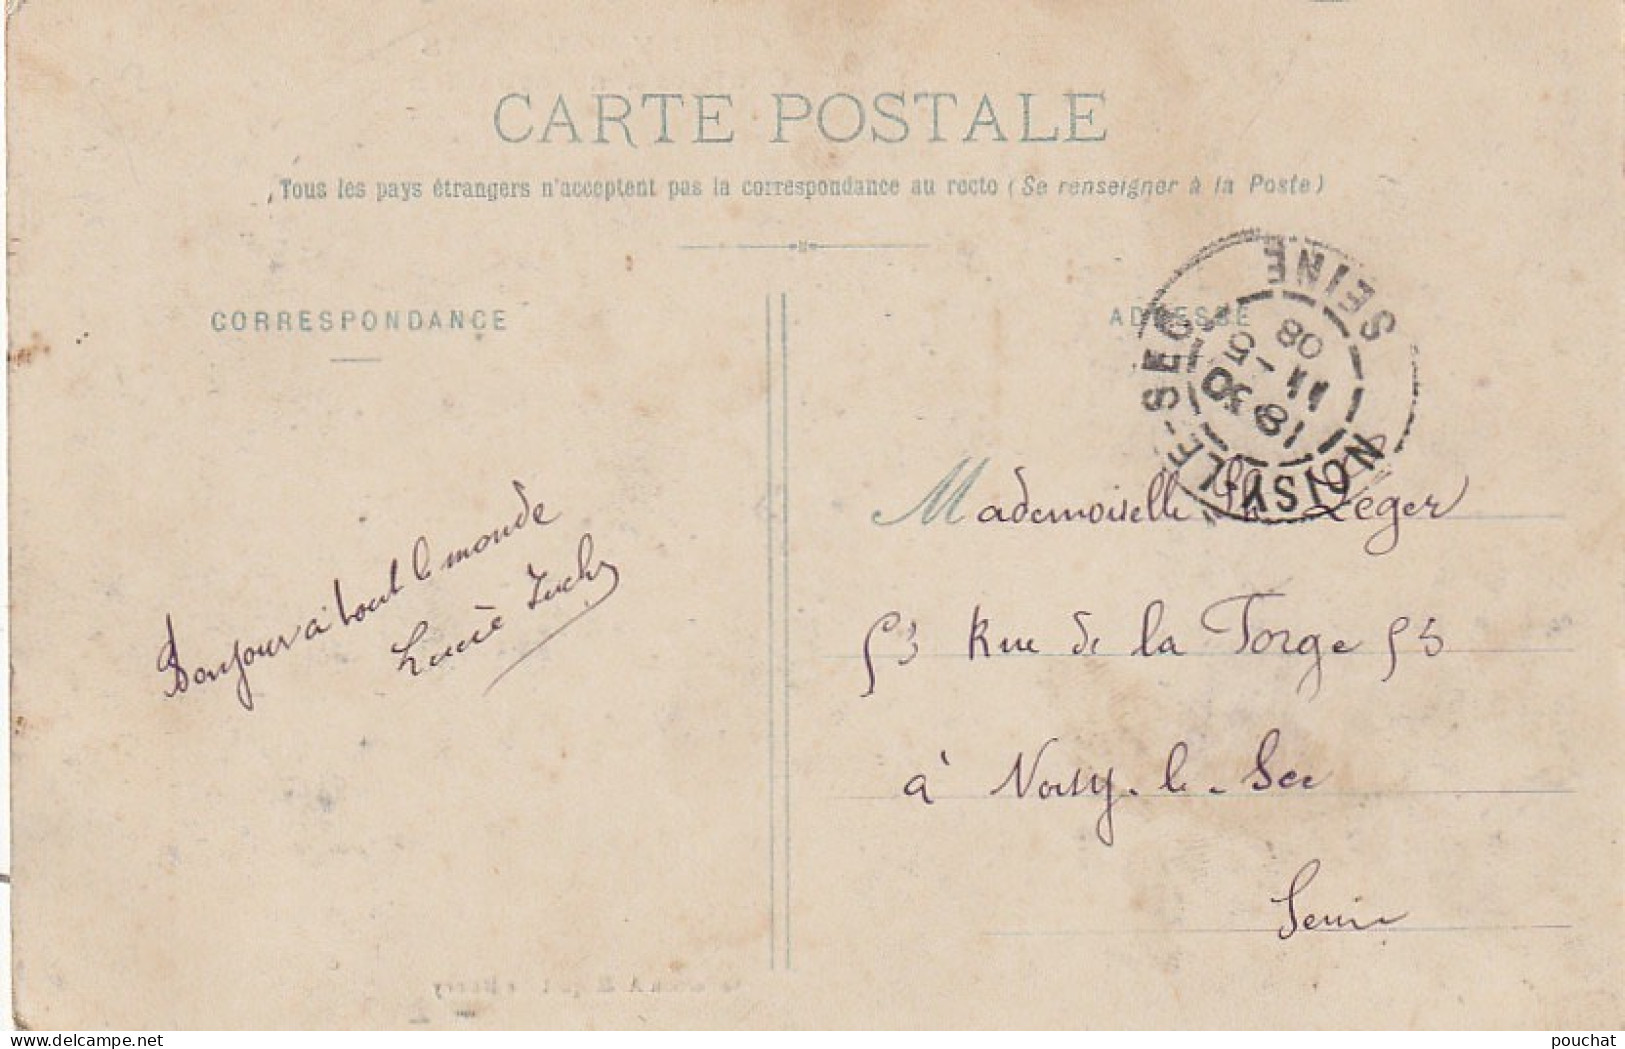 CARTE POSTALE
Tous les pays étrangers n'acceptent pas la correspondance au recto (Se renseigner à la Poste)
CORRESPONDANCE
ADRESSE
NOISY-LE-SEC
SEINE
18 30
11 - 5
08
Bonjour à tout le monde
Lucie
Mademoiselle Leger
53 Rue de la Forge 53
à Noisy-le-Sec
Seine
www.delcampe.net
pouchat